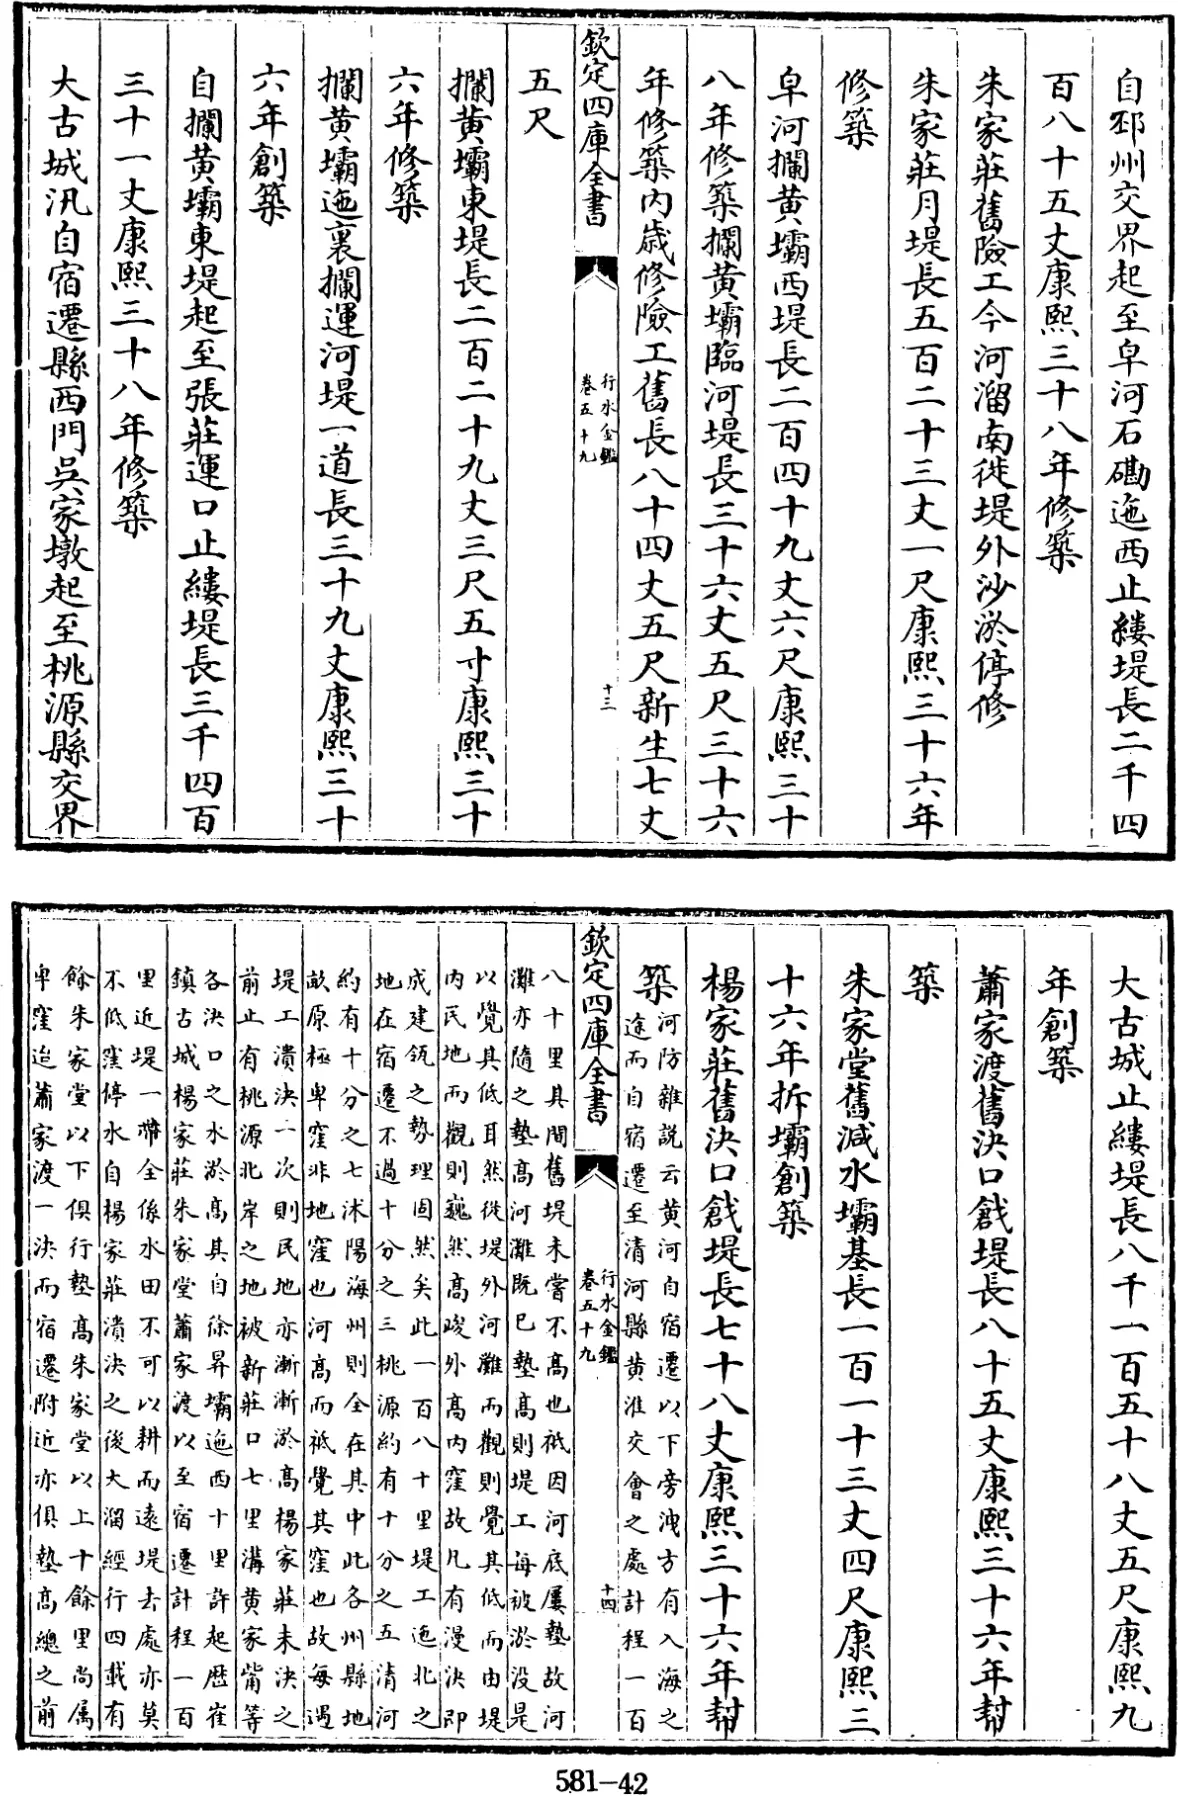 自邳州交界起至皁河石磡迤西止縷堤長二千四
百八十五丈康熙三十八年修築
朱家莊舊險工今河溜南徙堤外沙淤停修
朱家莊月堤長五百二十三丈一尺康熙三十六年
修築
皁河攔黄壩西堤長二百四十九丈六尺康熙三十
八年修築攔黄壩臨河堤長三十六丈五尺三十六
年修築内歲修險工舊長八十四丈五尺新生七丈
欽定四庫全書
行水金鑑
卷五十九
十三
五尺
攔黄壩東堤長二百二十九丈三尺五寸康熙三十
六年修築
攔黄壩迤裏攔運河堤一道長三十九丈康熙三十
六年創築
自攔黄壩東堤起至張莊運口止縷堤長三千四百
三十一丈康熙三十八年修築
大古城汛自宿遷縣西門吳家墩起至桃源縣交界
大古城止縷堤長八千一百五十八丈五尺康熙九
年創築
蕭家渡舊決口戧堤長八十五丈康熙三十六年幇
築
朱家堂舊減水壩基長一百一十三丈四尺康熙三
十六年拆壩創築
楊家莊舊決口戧堤長七十八丈康熙三十六年幇
築
河防雜説云黄河自宿遷以下旁洩方有入海之
途而自宿遷至清河縣黄淮交會之處計程一百
欽定四庫全書
行水金鑑
卷五十九
十四
八十里其間舊堤未嘗不高也祇因河底屢墊故河
灘亦隨之墊高河灘既已墊高則堤工每被淤没是
以覺其低耳然從堤外河灘而觀則覺其低而由堤
内民地而觀則巍然高峻外高内窪故凡有漫決即
成建瓴之勢理固然矣此一百八十里堤工迤北之
地在宿遷不過十分之三桃源約有十分之五清河
約有十分之七沭陽海州則全在其中此各州縣地
畝原極卑窪非地窪也河高而祇覺其窪也故每遇
堤工潰決一次則民地亦漸漸淤高楊家莊未決之
前止有桃源北岸之地被新莊口七里溝黄家觜等
各決口之水淤高其自徐昇壩迤西十里許起歴崔
鎮古城楊家莊朱家堂蕭家渡以至宿遷計程一百
里近堤一帶全係水田不可以耕而遠堤去處亦莫
不低窪停水自楊家莊潰決之後大溜經行四載有
餘朱家堂以下俱行墊高朱家堂以上十餘里尚属
卑窪迨蕭家渡一決而宿遷附近亦俱墊高總之前
581-42